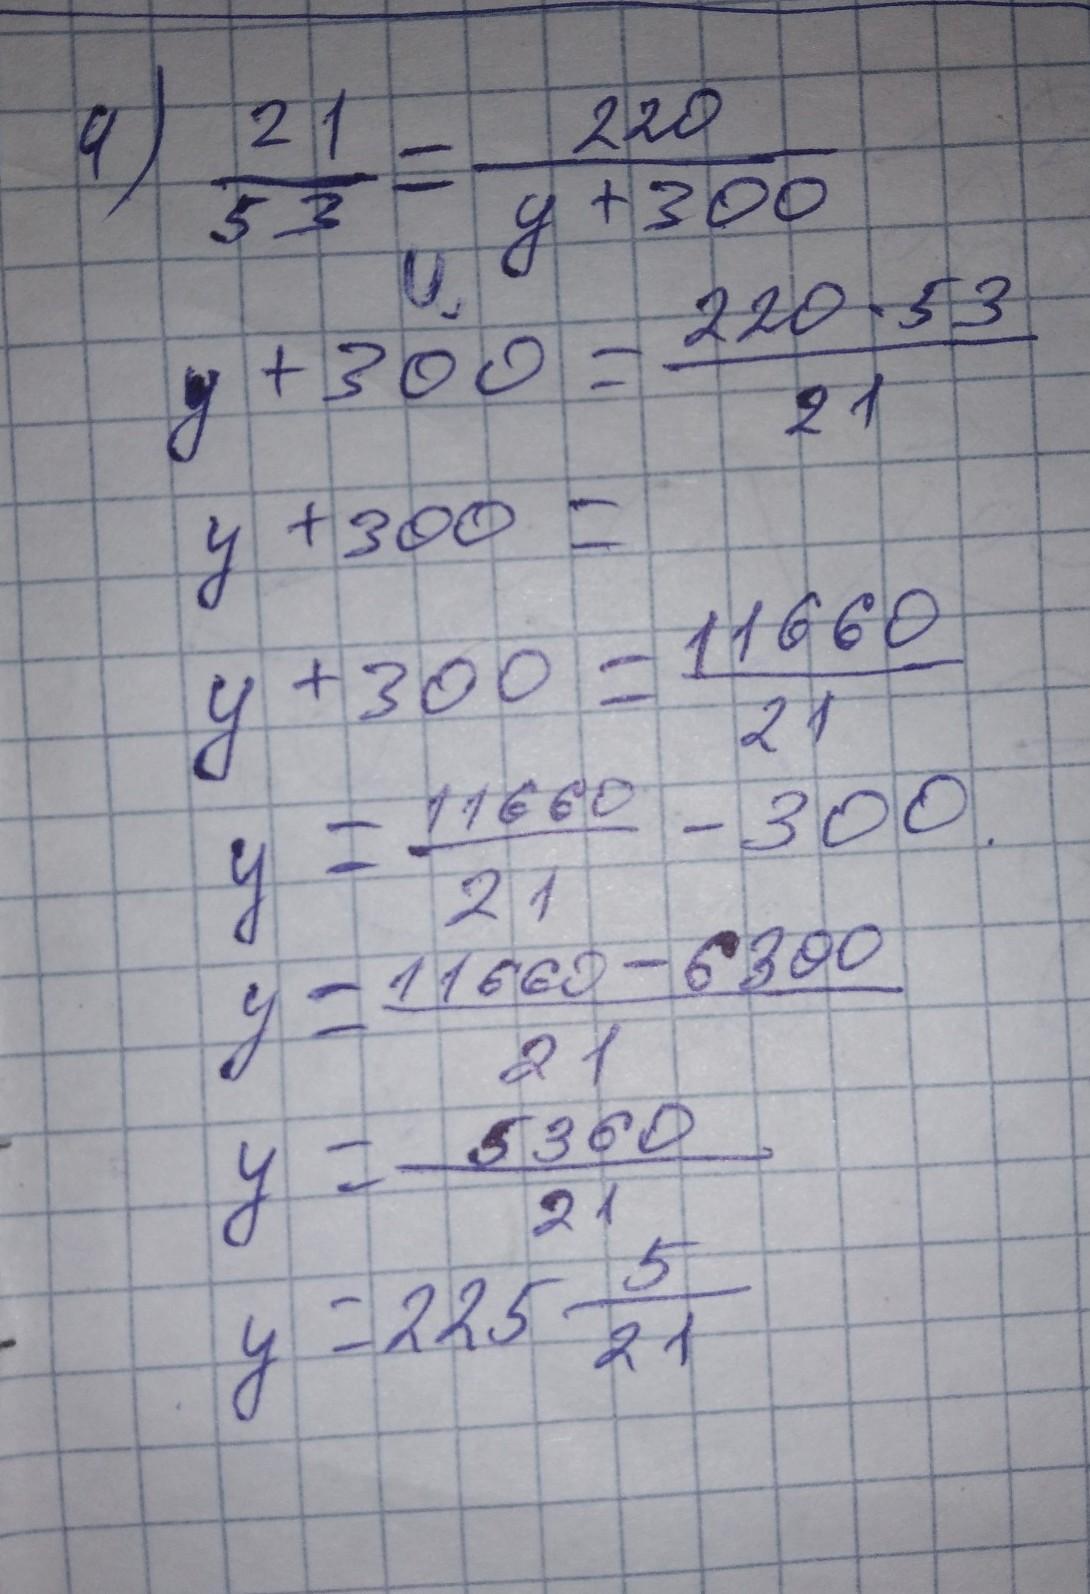 9) 21/53 = 220/(y + 300)
y + 300 = (220 · 53)/21
y + 300 =
y + 300 = 11660/21
y = 11660/21 - 300.
y = (11660 - 6300)/21
y = 5360/21
y = 225 5/21